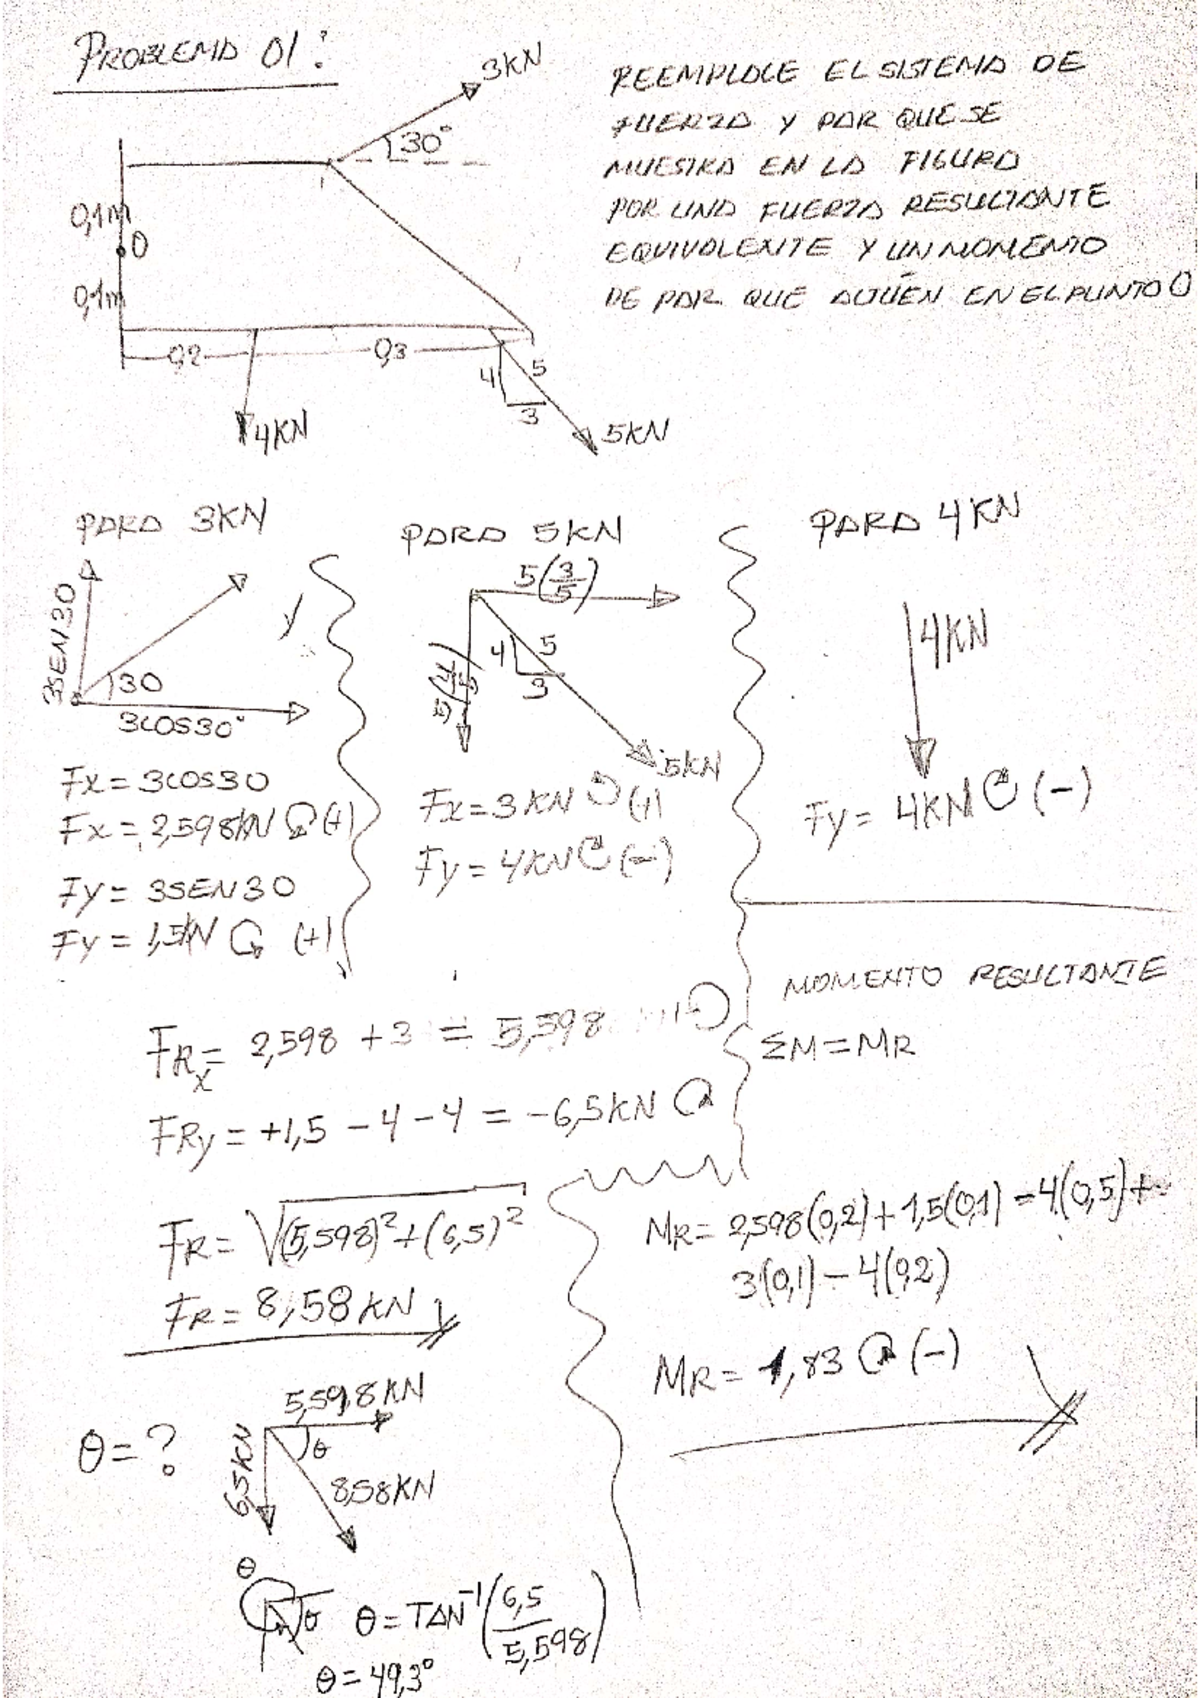 PROBLEMA 01:
3KN
30°
0,1m
O
0,1m
0,2
0,3
4KN
4
5
3
5KN
REEMPLACE EL SISTEMA DE
FUERZA Y PAR QUE SE
MUESTRA EN LA FIGURA
POR UNA FUERZA RESULTANTE
EQUIVALENTE Y UN MOMENTO
DE PAR QUE ACTÚEN EN EL PUNTO O
PARA 3KN
3SEN30
30
3COS30°
Fx = 3COS30
Fx = 2,598KN (+)
Fy = 3SEN30
Fy = 1,5KN (+)
PARA 5KN
5(3/5)
5(4/5)
4
5
3
5KN
Fx = 3KN (+)
Fy = 4KN (-)
PARA 4KN
4KN
Fy = 4KN (-)
FRx = 2,598 + 3 = 5,598
FRy = +1,5 - 4 - 4 = -6,5KN
FR = √(5,598)² + (6,5)²
FR = 8,58 KN
MOMENTO RESULTANTE
ΣM = MR
MR = 2,598(0,2) + 1,5(0,1) - 4(0,5) +
3(0,1) - 4(0,2)
MR = 1,83 (-)
θ = ?
5,598KN
6,5KN
θ
8,58KN
θ
θ
θ = TAN⁻¹(6,5/5,598)
θ = 49,3°